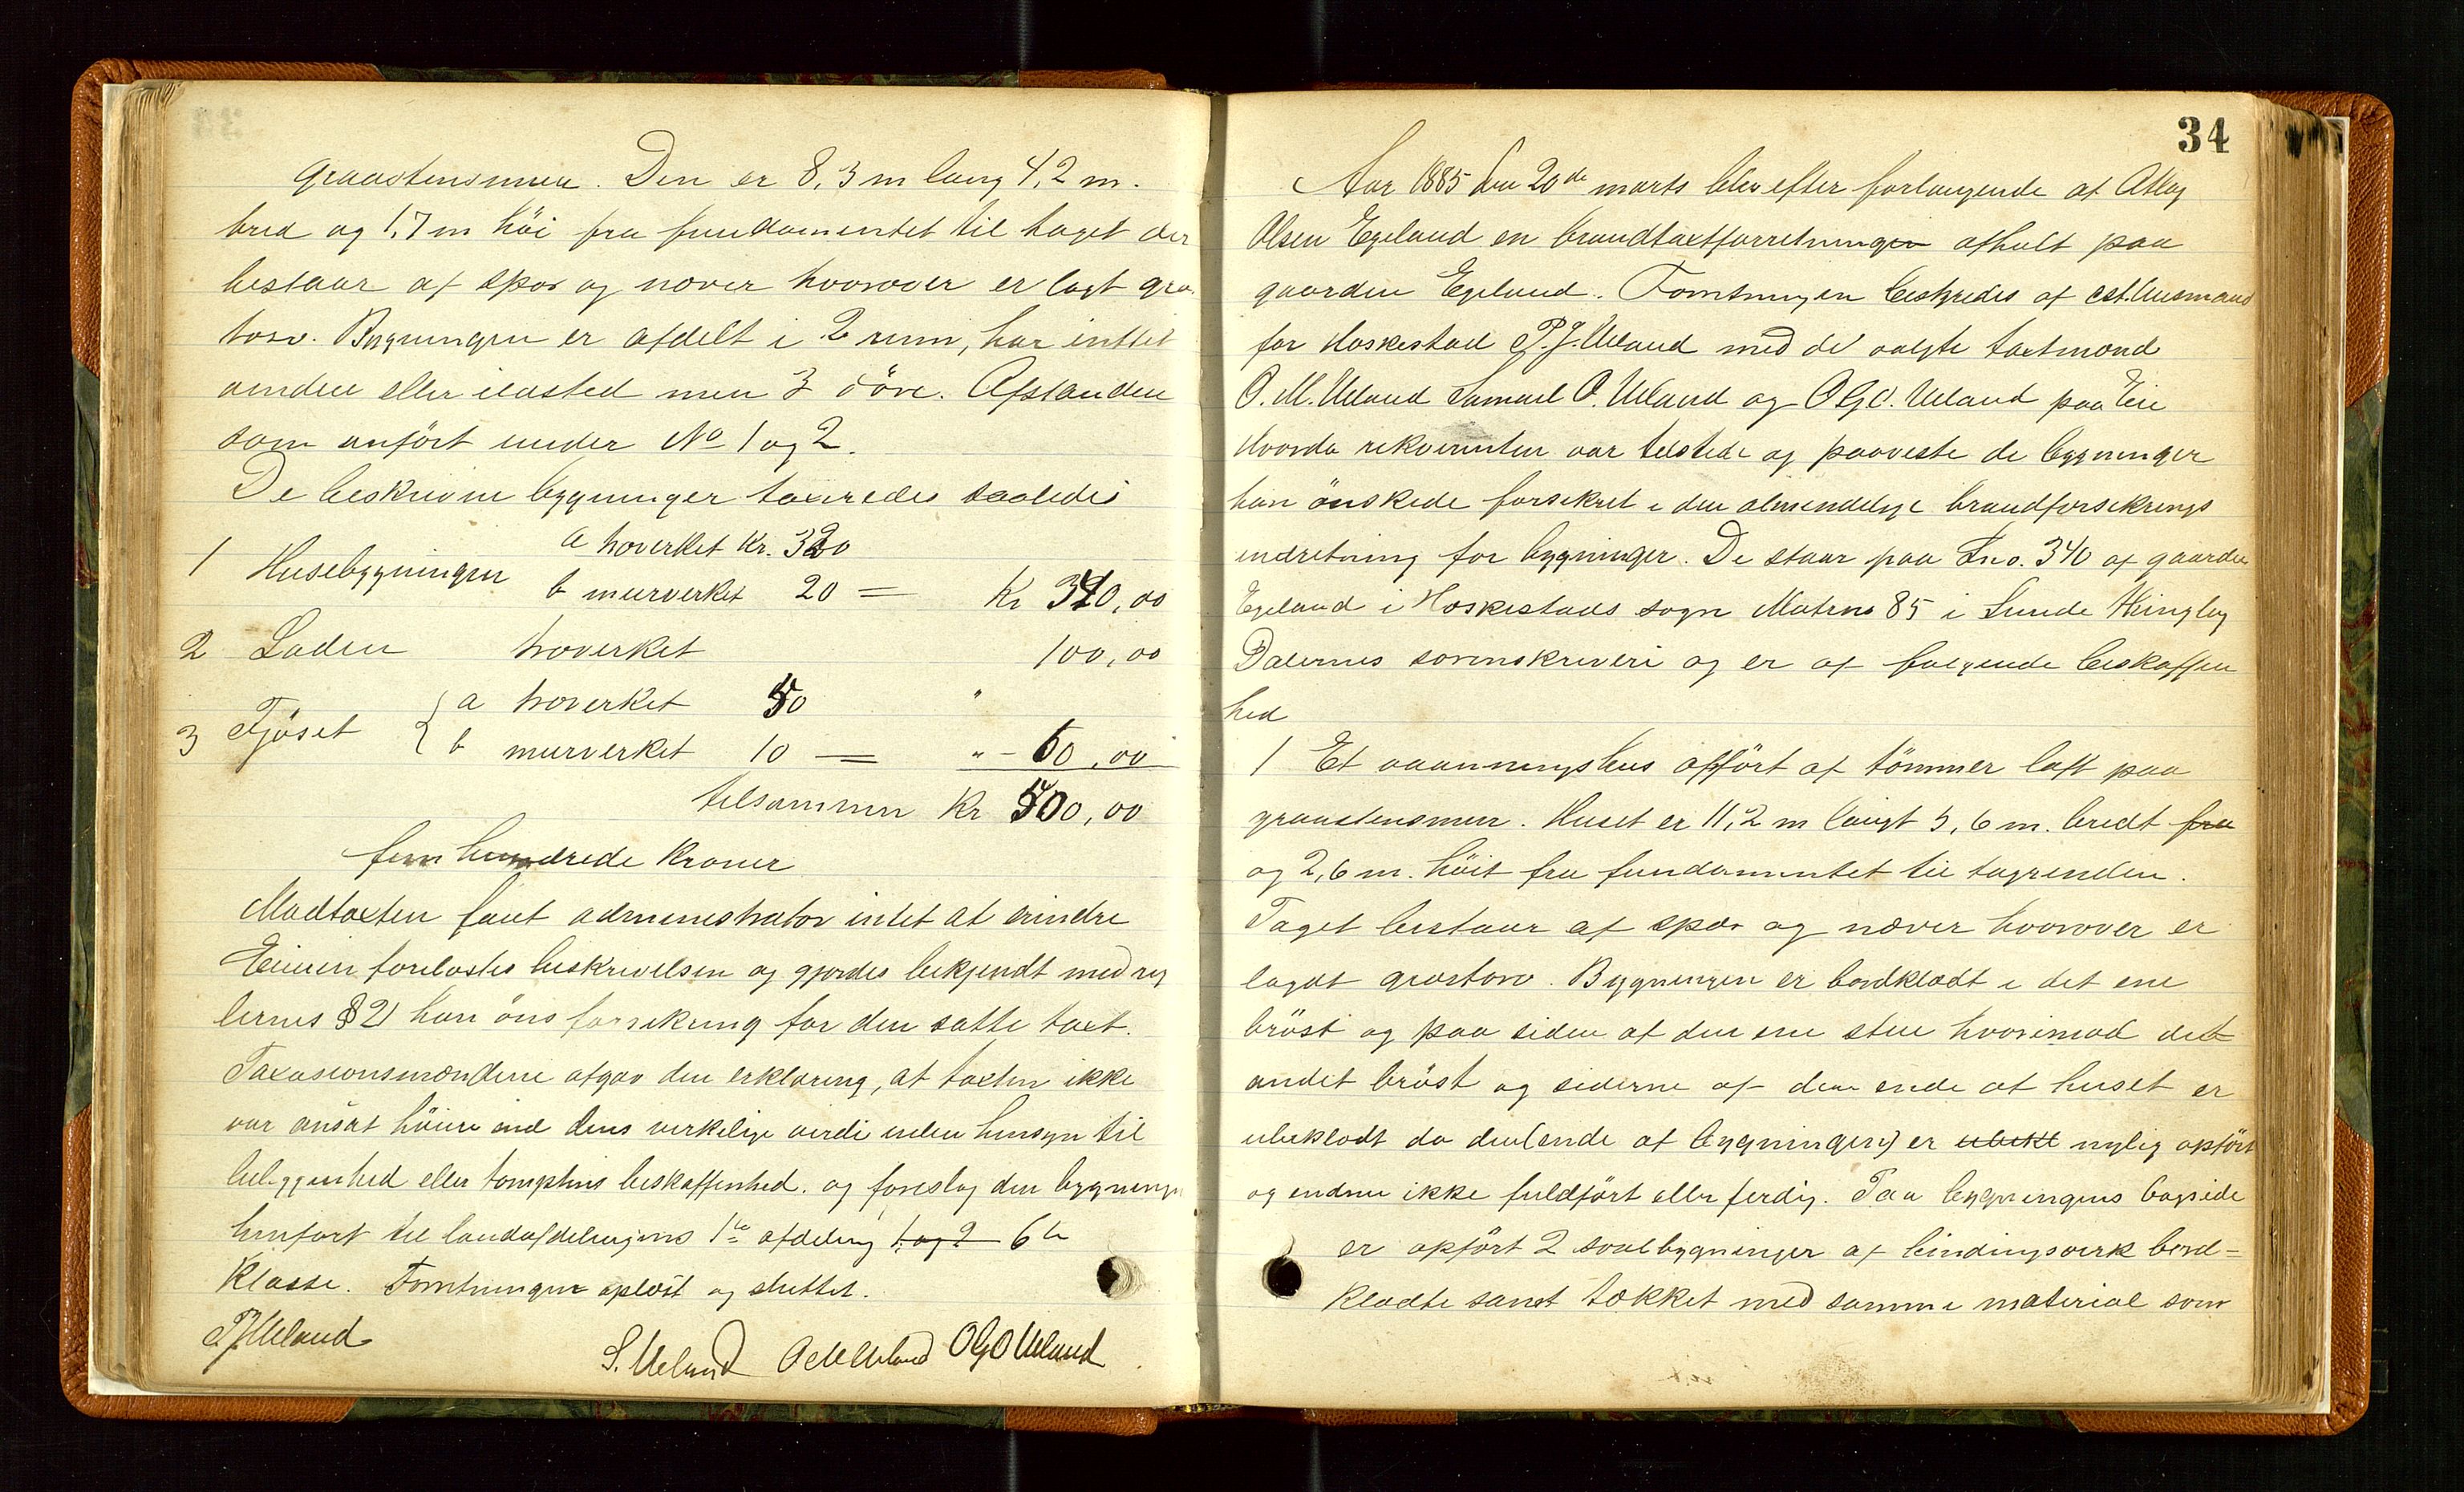 graastensmur. Den er 8,3 m lang 4,2 m.
bred og 1,7 m höi fra fundamentet til taget der
bestaar af spær og næver hvorover er lagt græs
torv. Bygningen er afdelt i 2 rum, har intet
vindu eller ildsted men 3 döre. Afstanden
som anfört under No 1 og 2.
De beskrivne bygninger taxeredes saaledes
a træverket Kr. 320
1 Husebygningen b murverket 20 = Kr 340,00
2 Laden træverket 100,00
3 Fjöset a træverket 50 "
b murverket 10 = " - 60,00
tilsammen Kr 500,00
fem hundrede Kroner
Modtaxten fant administrator intet at erindre
Eieren forelæstes beskrivelsen og gjordes bekjendt med reg
lernes § 21 han öns forsikring for den satte taxt.
Taxasionsmændene afgav den erklæring, at taxten ikke
var ansat höiere end dens virkelige verdi uden hensyn til
beliggenhed eller tomptens beskaffenhed. og foreslog den bygninge
henfört til landafdelingens 1te afdeling 1 og 2 6te
Klasse. Forretningen oplæst og sluttet.
P J Ueland
S. Ueland O M Ueland O G O Ueland
34
Aar 1885 den 20de marts blev efter forlangende af Atlag
Olsen Egeland en brandtaxtforretningen afholt paa
gaarden Egeland. Forretningen bestyredes af cst. lensmand
for Heskestad P. J. Ueland med de valgte taxtmænd
O. M. Ueland Samuel O. Ueland og O G O. Ueland paa Eie
Hvorda rekvirenten var tilstede og paaviste de bygninger
han önskede forsikret i den almindelige brandforsikrings
indretning for bygninger. De staar paa Lno. 340 af gaarden
Egeland i Heskestads sogn Matrno 85 i Lunde thinglag
Dalernes sorenskriveri og er af fölgende beskaffen
hed
1 Et vaaningshus opfört af tömmer laft paa
graastensmur. Huset er 11,2 m langt 5,6 m. bredt fra
og 2,6 m. höit fra fundamentet til tagrenden.
Taget bestaar af spær og næver hvorover er
lagdt græstorv. Bygningen er bordklædt i det ene
bröst og paa siden af den ene stue hvorimod det
andet bröst og siderne af den ende af huset er
ubeklædt da den (ende af bygningen) er ubekl nylig opfört
og endnu ikke fuldfört eller ferdig. Paa bygningens bagside
er opfört 2 svalbygninger af bindingsverk bord=
klædte samt tækket med samme material som